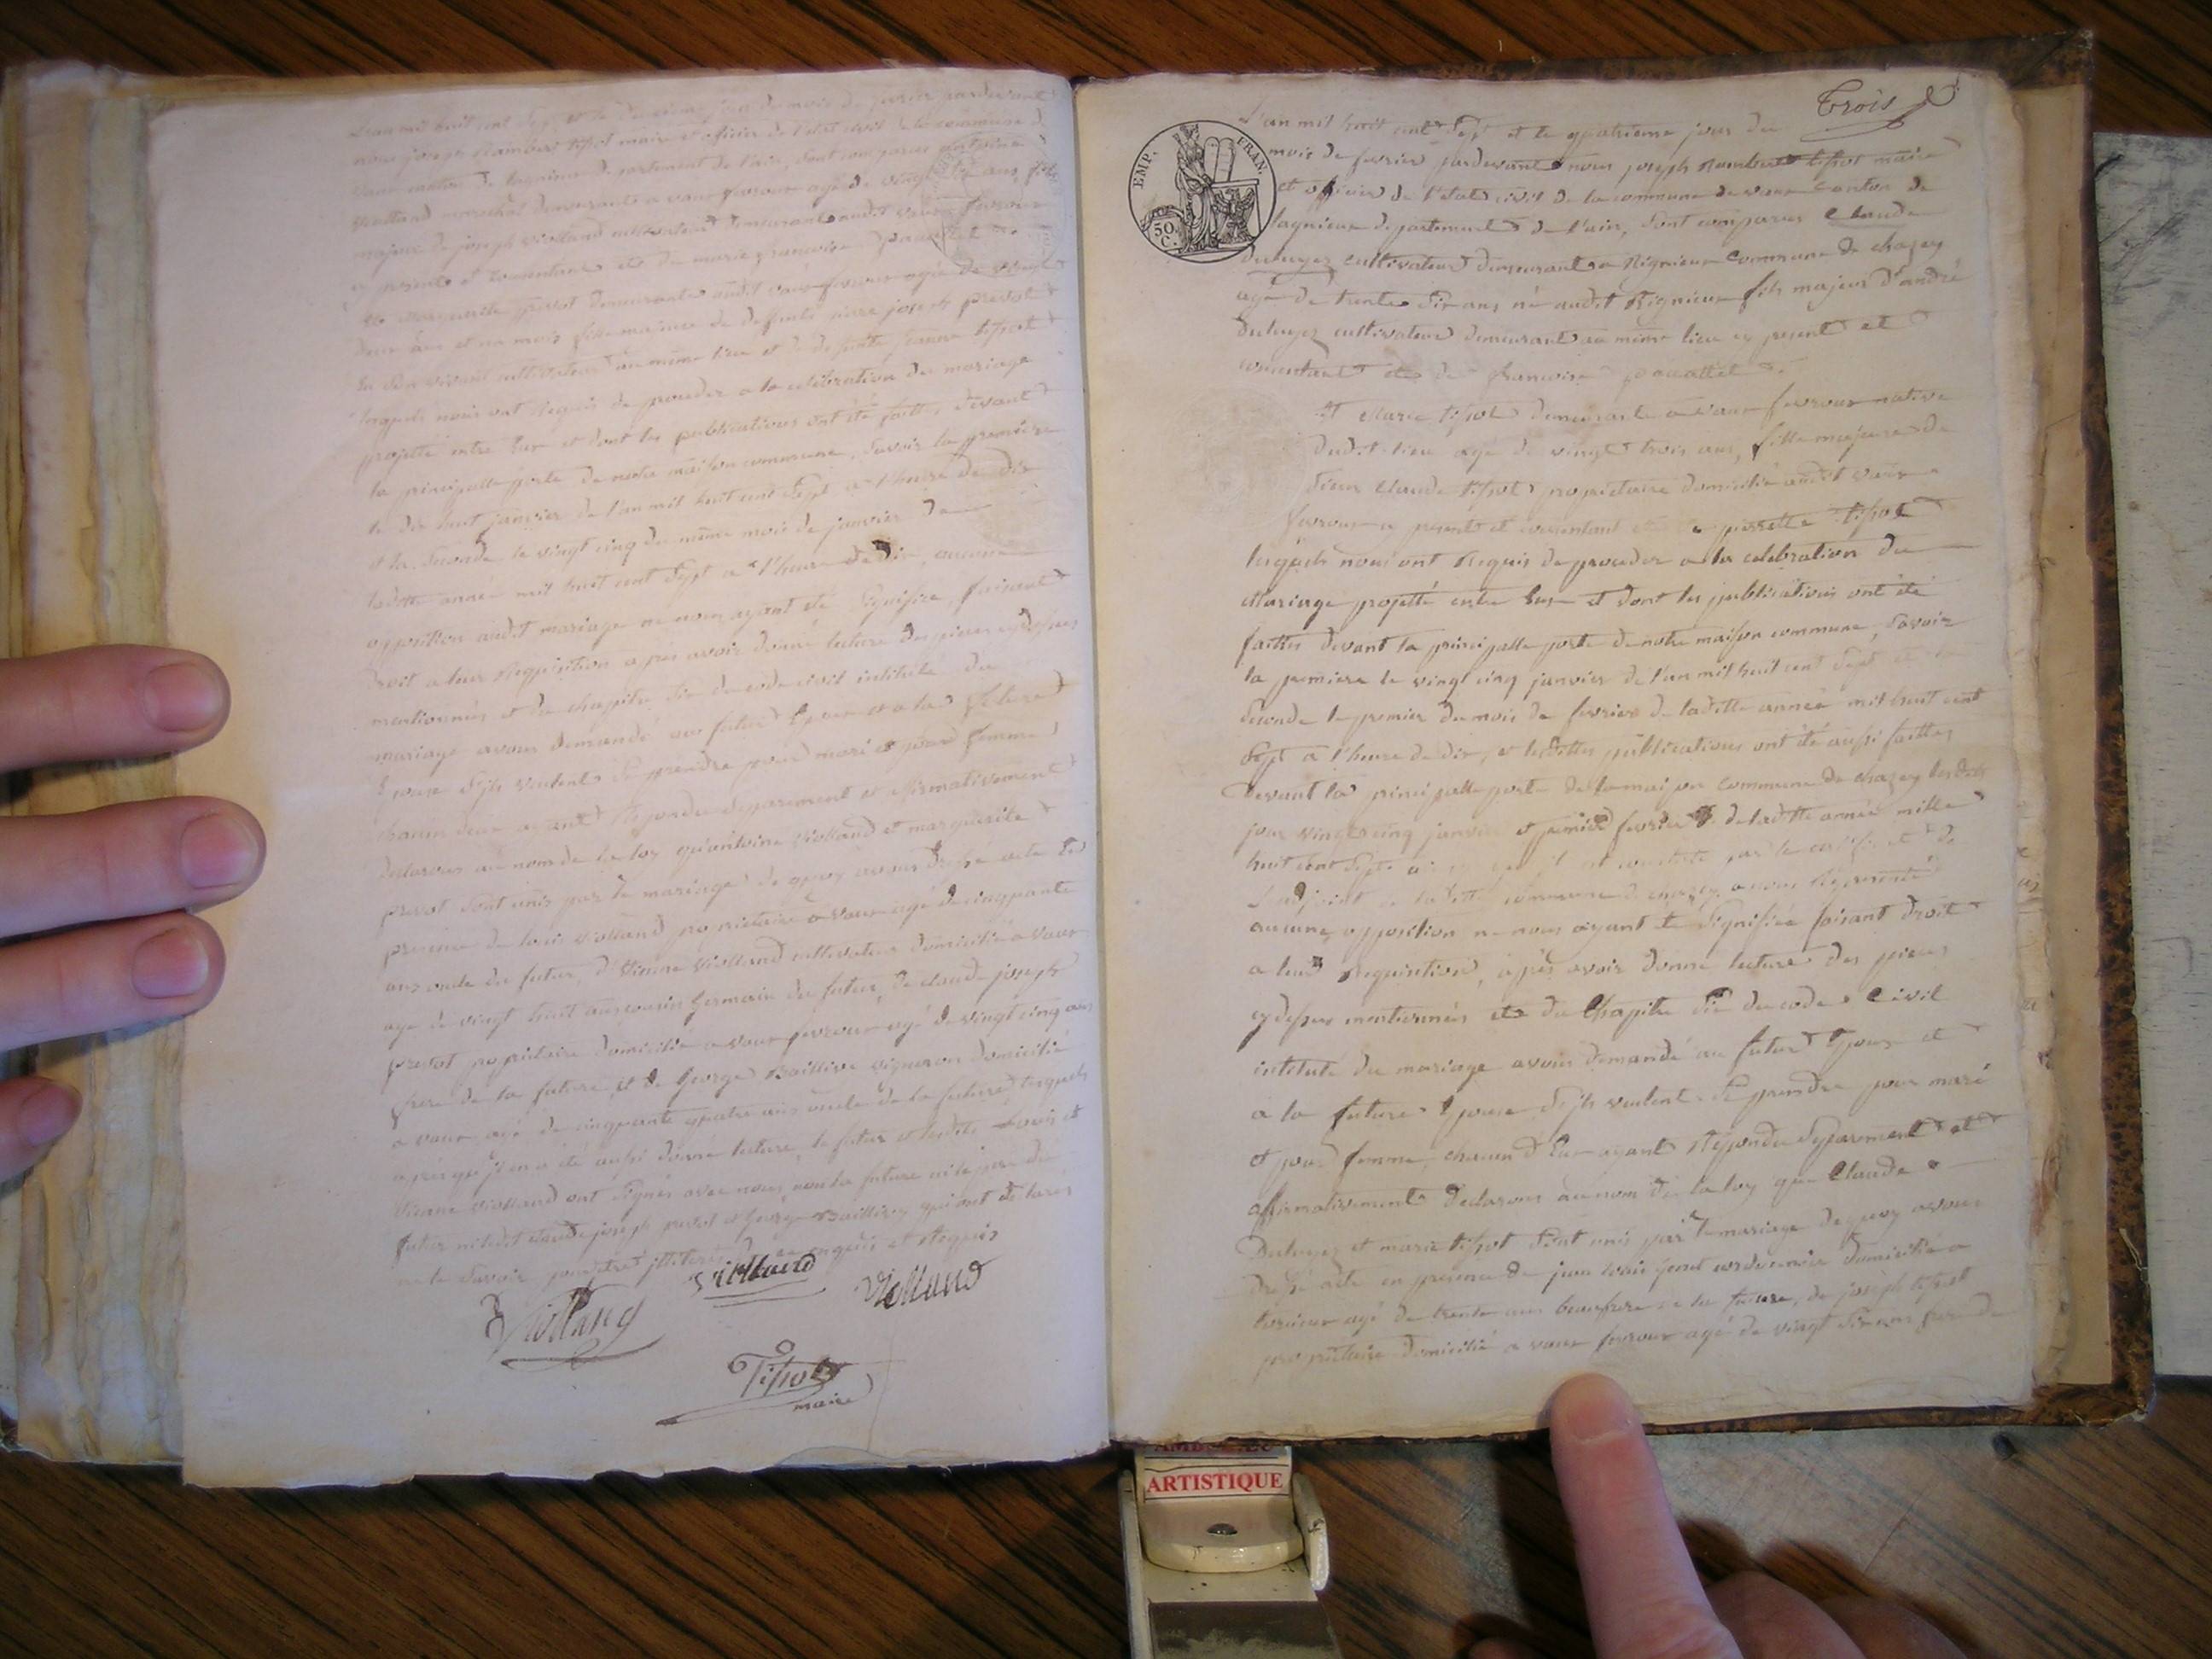 L'an mil huit cent Sept et le jour du mois de pardevant
nous joseph Rambert tissot maire et officier de l'état civil de la commune de
vaux canton de lagnieu departement de l'ain, sont comparus antoine
Violland marechal demeurant a vaux fevroux agé de vingt ans, fils
majeur de joseph Violland cultivateur demeurant audit vaux fevroux
cy present et consentant et de marie francoise
Et Marguerite prevot demeurante audit vaux fevroux agée de vingt
deux ans et un mois fille majeure de deffunts joseph prevot
en son vivant cultivateur au même lieu et de deffunte jeanne tissot
lesquels nous ont Requis de proceder a la celebration du mariage
projetté entre Eux et dont les publications ont été faittes devant
la principalle porte de notre maison commune, Savoir la première
le dix huit janvier de l'an mil huit cent Sept a l'heure de dix
et la Seconde le vingt cinq du même mois de janvier de
laditte année mil huit cent Sept a l'heure de dix, aucune
opposition audit mariage ne nous ayant été Signifiée, faisant
droit a leur Requisition après avoir donné lecture des pieces cydessus
mentionnées et du chapitre Six du code civil intitulé du
mariage avons demandé au futur Epoux et a la future
Epouse S'ils veulent Se prendre pour mari et pour femme
chacun deux ayant Repondu Separement et affirmativement
declarons au nom de la loy qu'antoine Violland et marguerite
prevot sont unis par le mariage de quoy avons dressé acte en
presence de louis Violland propriétaire a vaux agé de cinquante
ans oncle du futur, d'Etienne Violland cultivateur domicilié a vaux
agé de vingt huit ans cousin Germain du futur, de claude joseph
prevot propriétaire domicilié a vaux fevroux agé de vingt cinq ans
frere de la future et de George Baillivy vigneron domicilié
a vaux agé de cinquante quatre ans oncle de la future, lesquels
après qu'il en a été aussi donné lecture, le futur et lesdits Louis et
Etienne Violland ont Signés avec nous, non la future ni le pere du
futur ni ledit claude joseph prevot et George Baillivy qui ont declarés
ne le Savoir pour être illiterés de ce enquis et Requis
Violland Violland Violland
Tissot
maire
Trois
EMP. FRAN.
50 C.
L'an mil huit cent Sept et le quatrieme jour du
mois de fevrier pardevant nous joseph Rambert tissot maire
et officier de l'Etat civil de la commune de vaux canton de
lagnieux departement de l'ain, Sont comparus Claude
Duluyez cultivateur demeurant a Rignieux commune de chazey
agé de trente Six ans, né audit Rignieux fils majeur d'andré
Duluyez cultivateur demeurant au même lieu cy present et
consentant et de francoise
Et Marie tissot demeurante a vaux fevroux native
dudit lieu agé de vingt trois ans, fille majeure de
Sieur Claude tissot propriétaire domicilié audit vaux
fevroux cy present et consentant pierrette tissot
lesquels nous ont Requis de proceder a la celebration du
Mariage projetté entre Eux et dont les publications ont été
faittes devant la principalle porte de notre maison commune, Savoir
la premiere le vingt cinq janvier de l'an mil huit cent Sept et la
Seconde le premier du mois de fevrier de laditte année mil huit cent
Sept a l'heure de dix, et lesdittes publications ont été aussi faittes
Devant la principalle porte de la maison commune de chazey lesdits
jour vingt cinq janvier et premier fevrier de laditte année mille
huit cent Sept il est constaté par le certificat de
L'adjoint de laditte commune de chazey a nous Représenté
aucune opposition ne nous ayant été Signifiée faisant droit
a leur Requisition, après avoir donné lecture des pieces
cydessus mentionnées et du Chapitre Six du code Civil
intitulé du mariage avons demandé au futur Epoux et
a la future Epouse S'ils veulent Se prendre pour mari
et pour femme, chacun d'Eux ayant Repondu Separement et
affirmativement Declarons au nom de la loy que Claude
Duluyez et marie tissot Sont unis par le mariage de quoy avons
dressé acte en presence de jean louis cordonnier domicilié a
agé de trente ans beaufrere de la future, de joseph tissot
propriétaire domicilié a vaux fevroux agé de vingt Six ans frere de
ARTISTIQUE